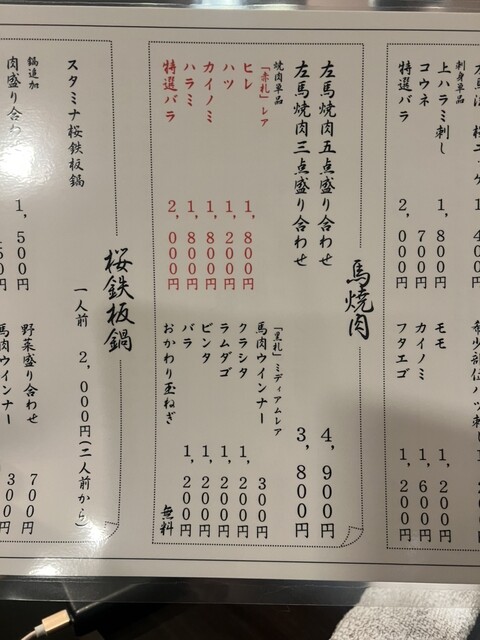 刺身単品
上ハラミ刺し 1,800円
コウネ 700円
特選バラ 2,000円
モモ 1,200円
カイノミ 1,600円
フタエゴ 1,200円
馬焼肉
左馬焼肉五点盛り合わせ 4,900円
左馬焼肉三点盛り合わせ 3,800円
焼肉単品
「赤札」レア
ヒレ 1,800円
ハツ 1,200円
カイノミ 1,800円
ハラミ 1,800円
特選バラ 2,000円
「黒札」ミディアムレア
馬肉ウインナー 300円
クラシタ 1,200円
ラムダゴ 1,200円
ビンタ 1,200円
バラ 1,200円
おかわり玉ねぎ 無料
桜鉄板鍋
スタミナ桜鉄板鍋
一人前 2,000円(二人前から)
鍋追加
肉盛り合わ 1,500円
野菜盛り合わせ 700円
馬肉ウインナー 300円